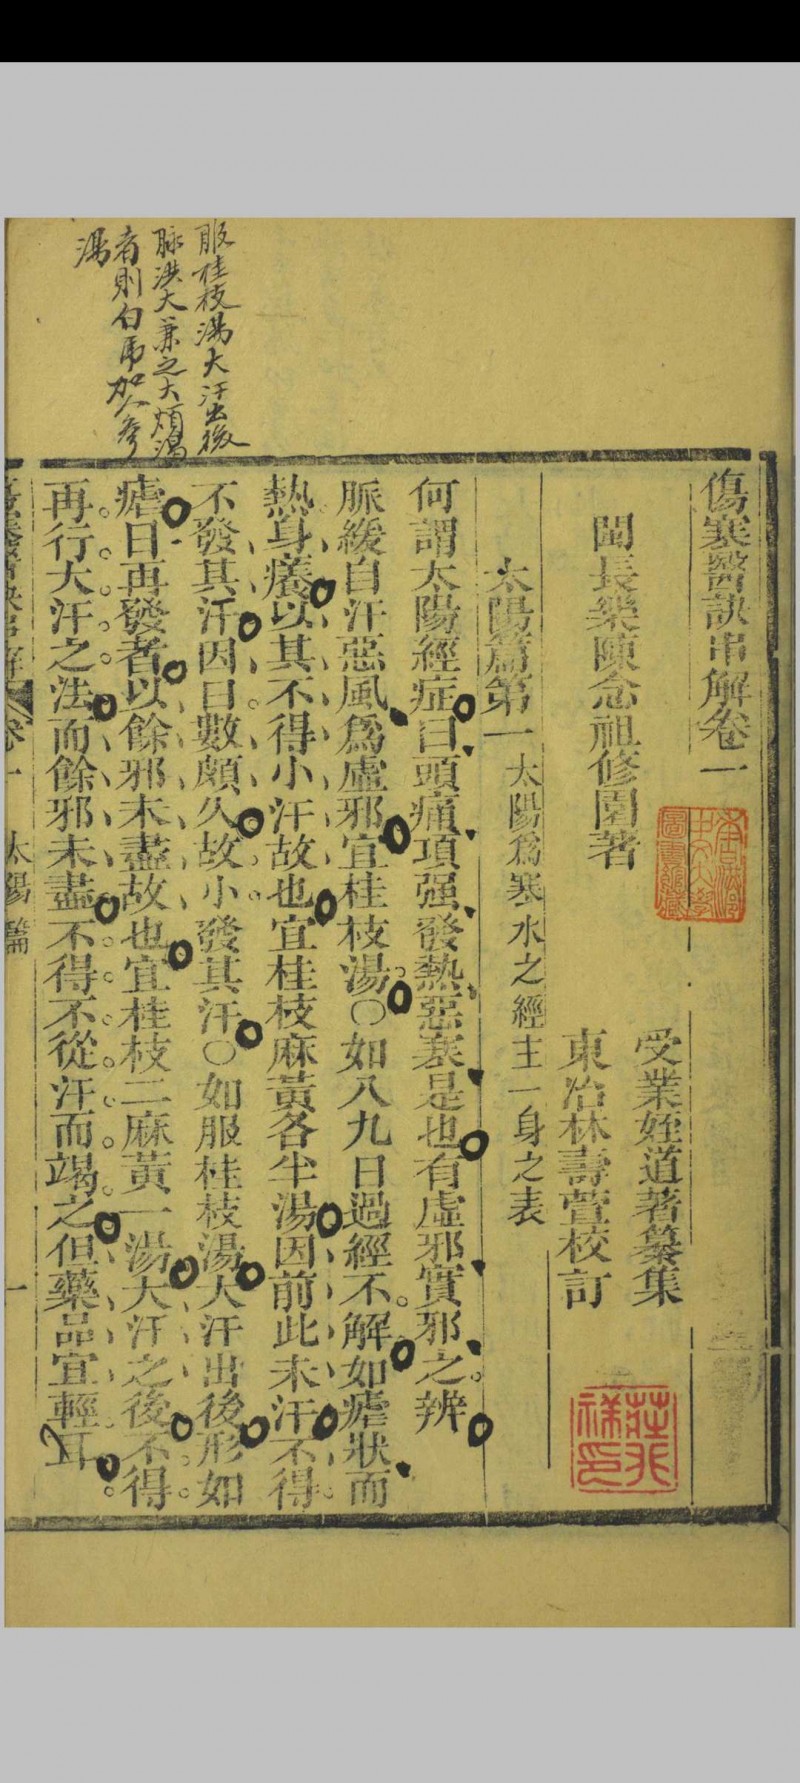 服桂枝湯大汗出後
脉洪大兼之大煩渴
者則白虎加人參
湯
傷寒醫訣串解卷一
閩長樂陳念祖修園著
受業姪道著纂集
東冶林壽萱校訂
太陽篇第一太陽爲寒水之經主一身之表
何謂太陽經症曰頭痛項强發熱惡寒是也有虛邪實邪之辨
脈緩自汗惡風爲虛邪宜桂枝湯〇如八九日過經不解如瘧狀而
熱身癢以其不得小汗故也宜桂枝麻黃各半湯因前此未汗不得
不發其汗因日數頗久故小發其汗〇如服桂枝湯大汗出後形如
瘧日再發者以餘邪未盡故也宜桂枝二麻黃一湯大汗之後不得
再行大汗之法而餘邪未盡不得不從汗而竭之但藥品宜輕耳
傷寒醫訣串解 卷一 太陽篇 一
香港中文大學圖書館藏